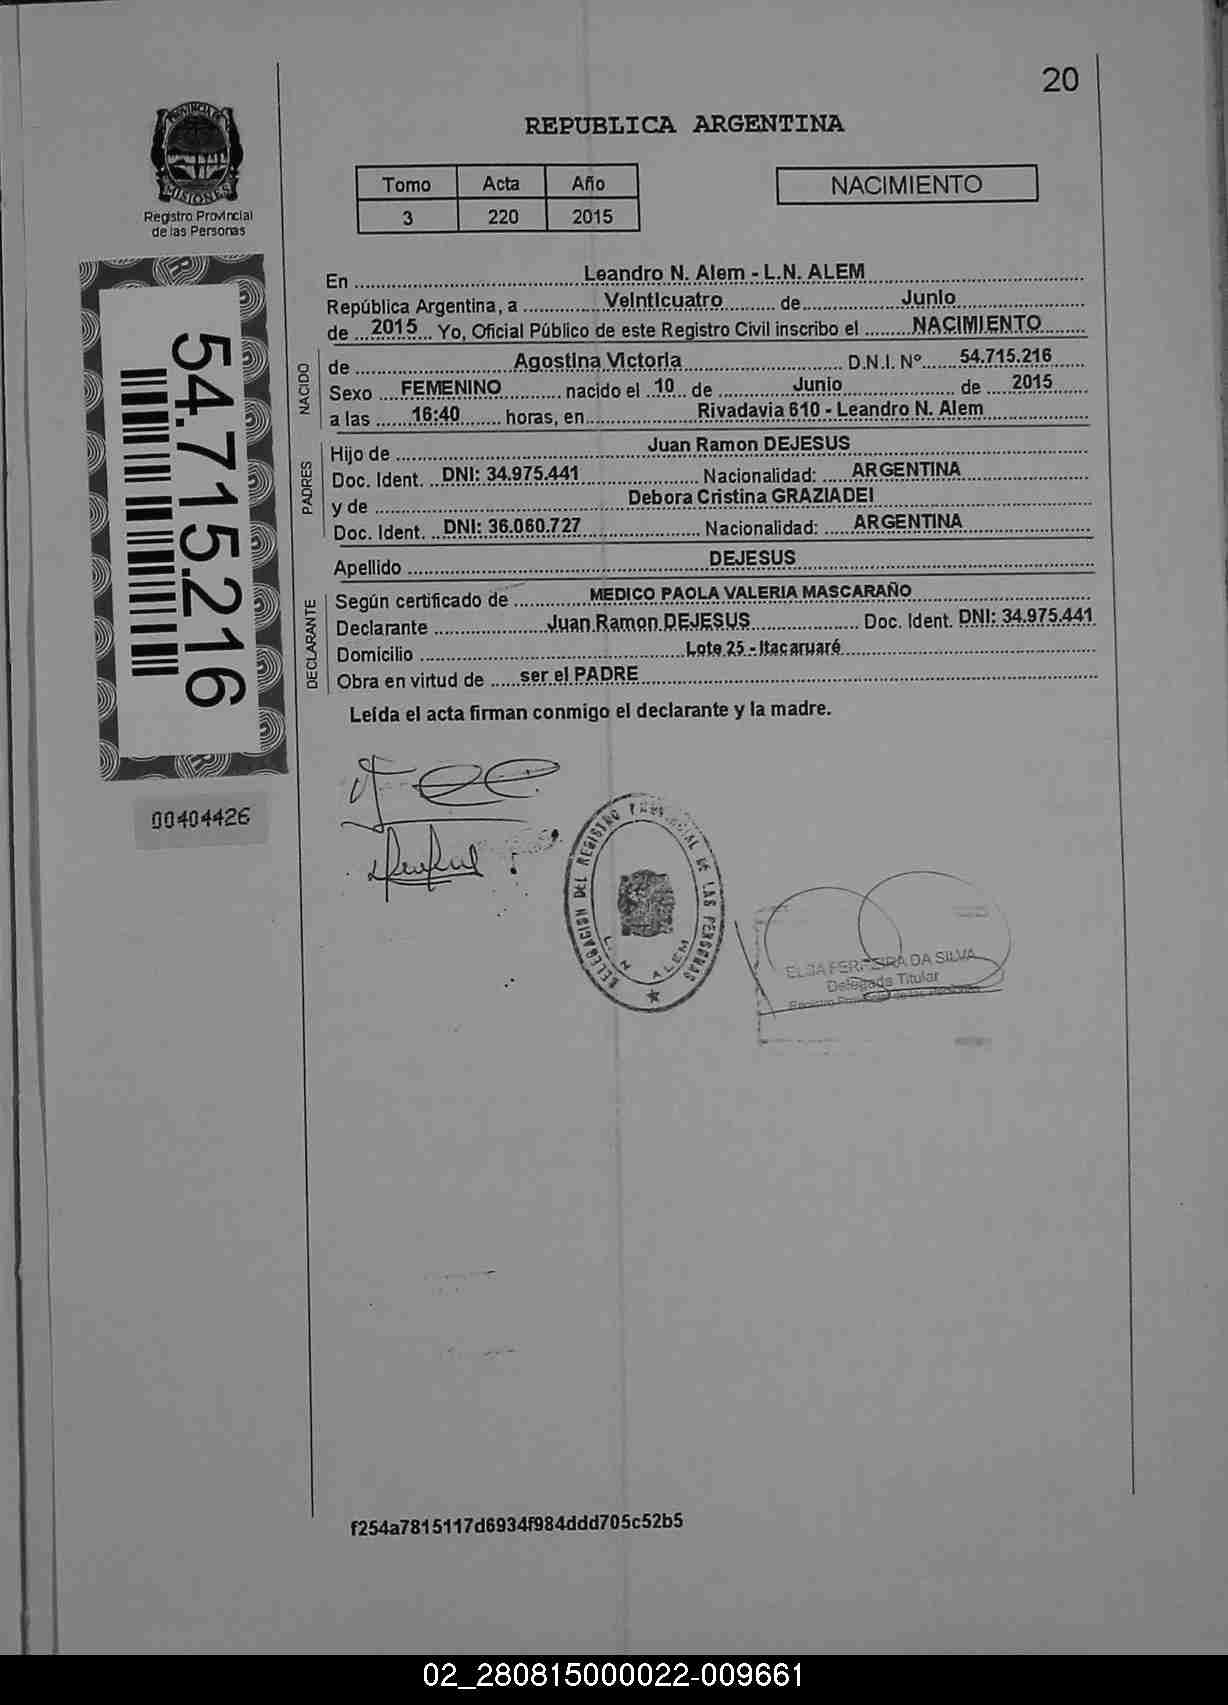 20
PROVINCIA DE
MISIONES
Registro Provincial
de las Personas
REPUBLICA ARGENTINA
Tomo Acta Año
3 220 2015
NACIMIENTO
En Leandro N. Alem - L.N. ALEM
República Argentina, a Veinticuatro de Junio
de 2015 Yo, Oficial Público de este Registro Civil inscribo el NACIMIENTO
NACIDO
de Agostina Victoria D.N.I. Nº 54.715.216
Sexo FEMENINO nacido el 10 de Junio de 2015
a las 16:40 horas, en Rivadavia 610 - Leandro N. Alem
PADRES
Hijo de Juan Ramon DEJESUS
Doc. Ident. DNI: 34.975.441 Nacionalidad: ARGENTINA
y de Debora Cristina GRAZIADEI
Doc. Ident. DNI: 36.060.727 Nacionalidad: ARGENTINA
Apellido DEJESUS
DECLARANTE
Según certificado de MEDICO PAOLA VALERIA MASCARAÑO
Declarante Juan Ramon DEJESUS Doc. Ident. DNI: 34.975.441
Domicilio Lote 25 - Itacaruaré
Obra en virtud de ser el PADRE
Leída el acta firman conmigo el declarante y la madre.
54.715.216
00404426
DELEGACION DEL REGISTRO PROVINCIAL DE LAS PERSONAS
L. N. ALEM
ELSA FERREIRA DA SILVA
Delegada Titular
Registro Provincial de las Personas
f254a7815117d6934f984ddd705c52b5
02_280815000022-009661